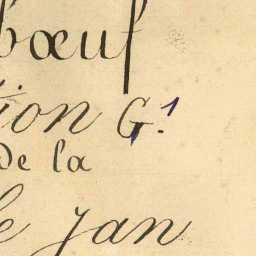 bœuf
ion G.¹
de la
e Jan